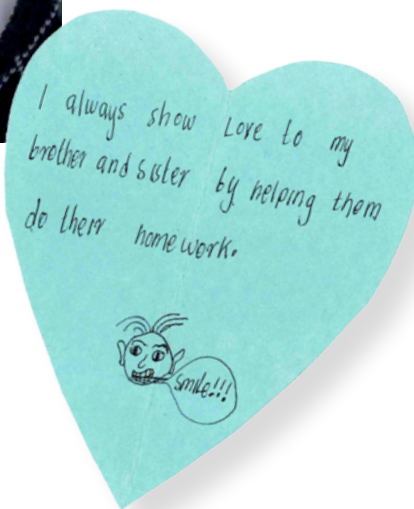 I always show Love to my
brother and sister by helping them
do their homework.
smile!!!